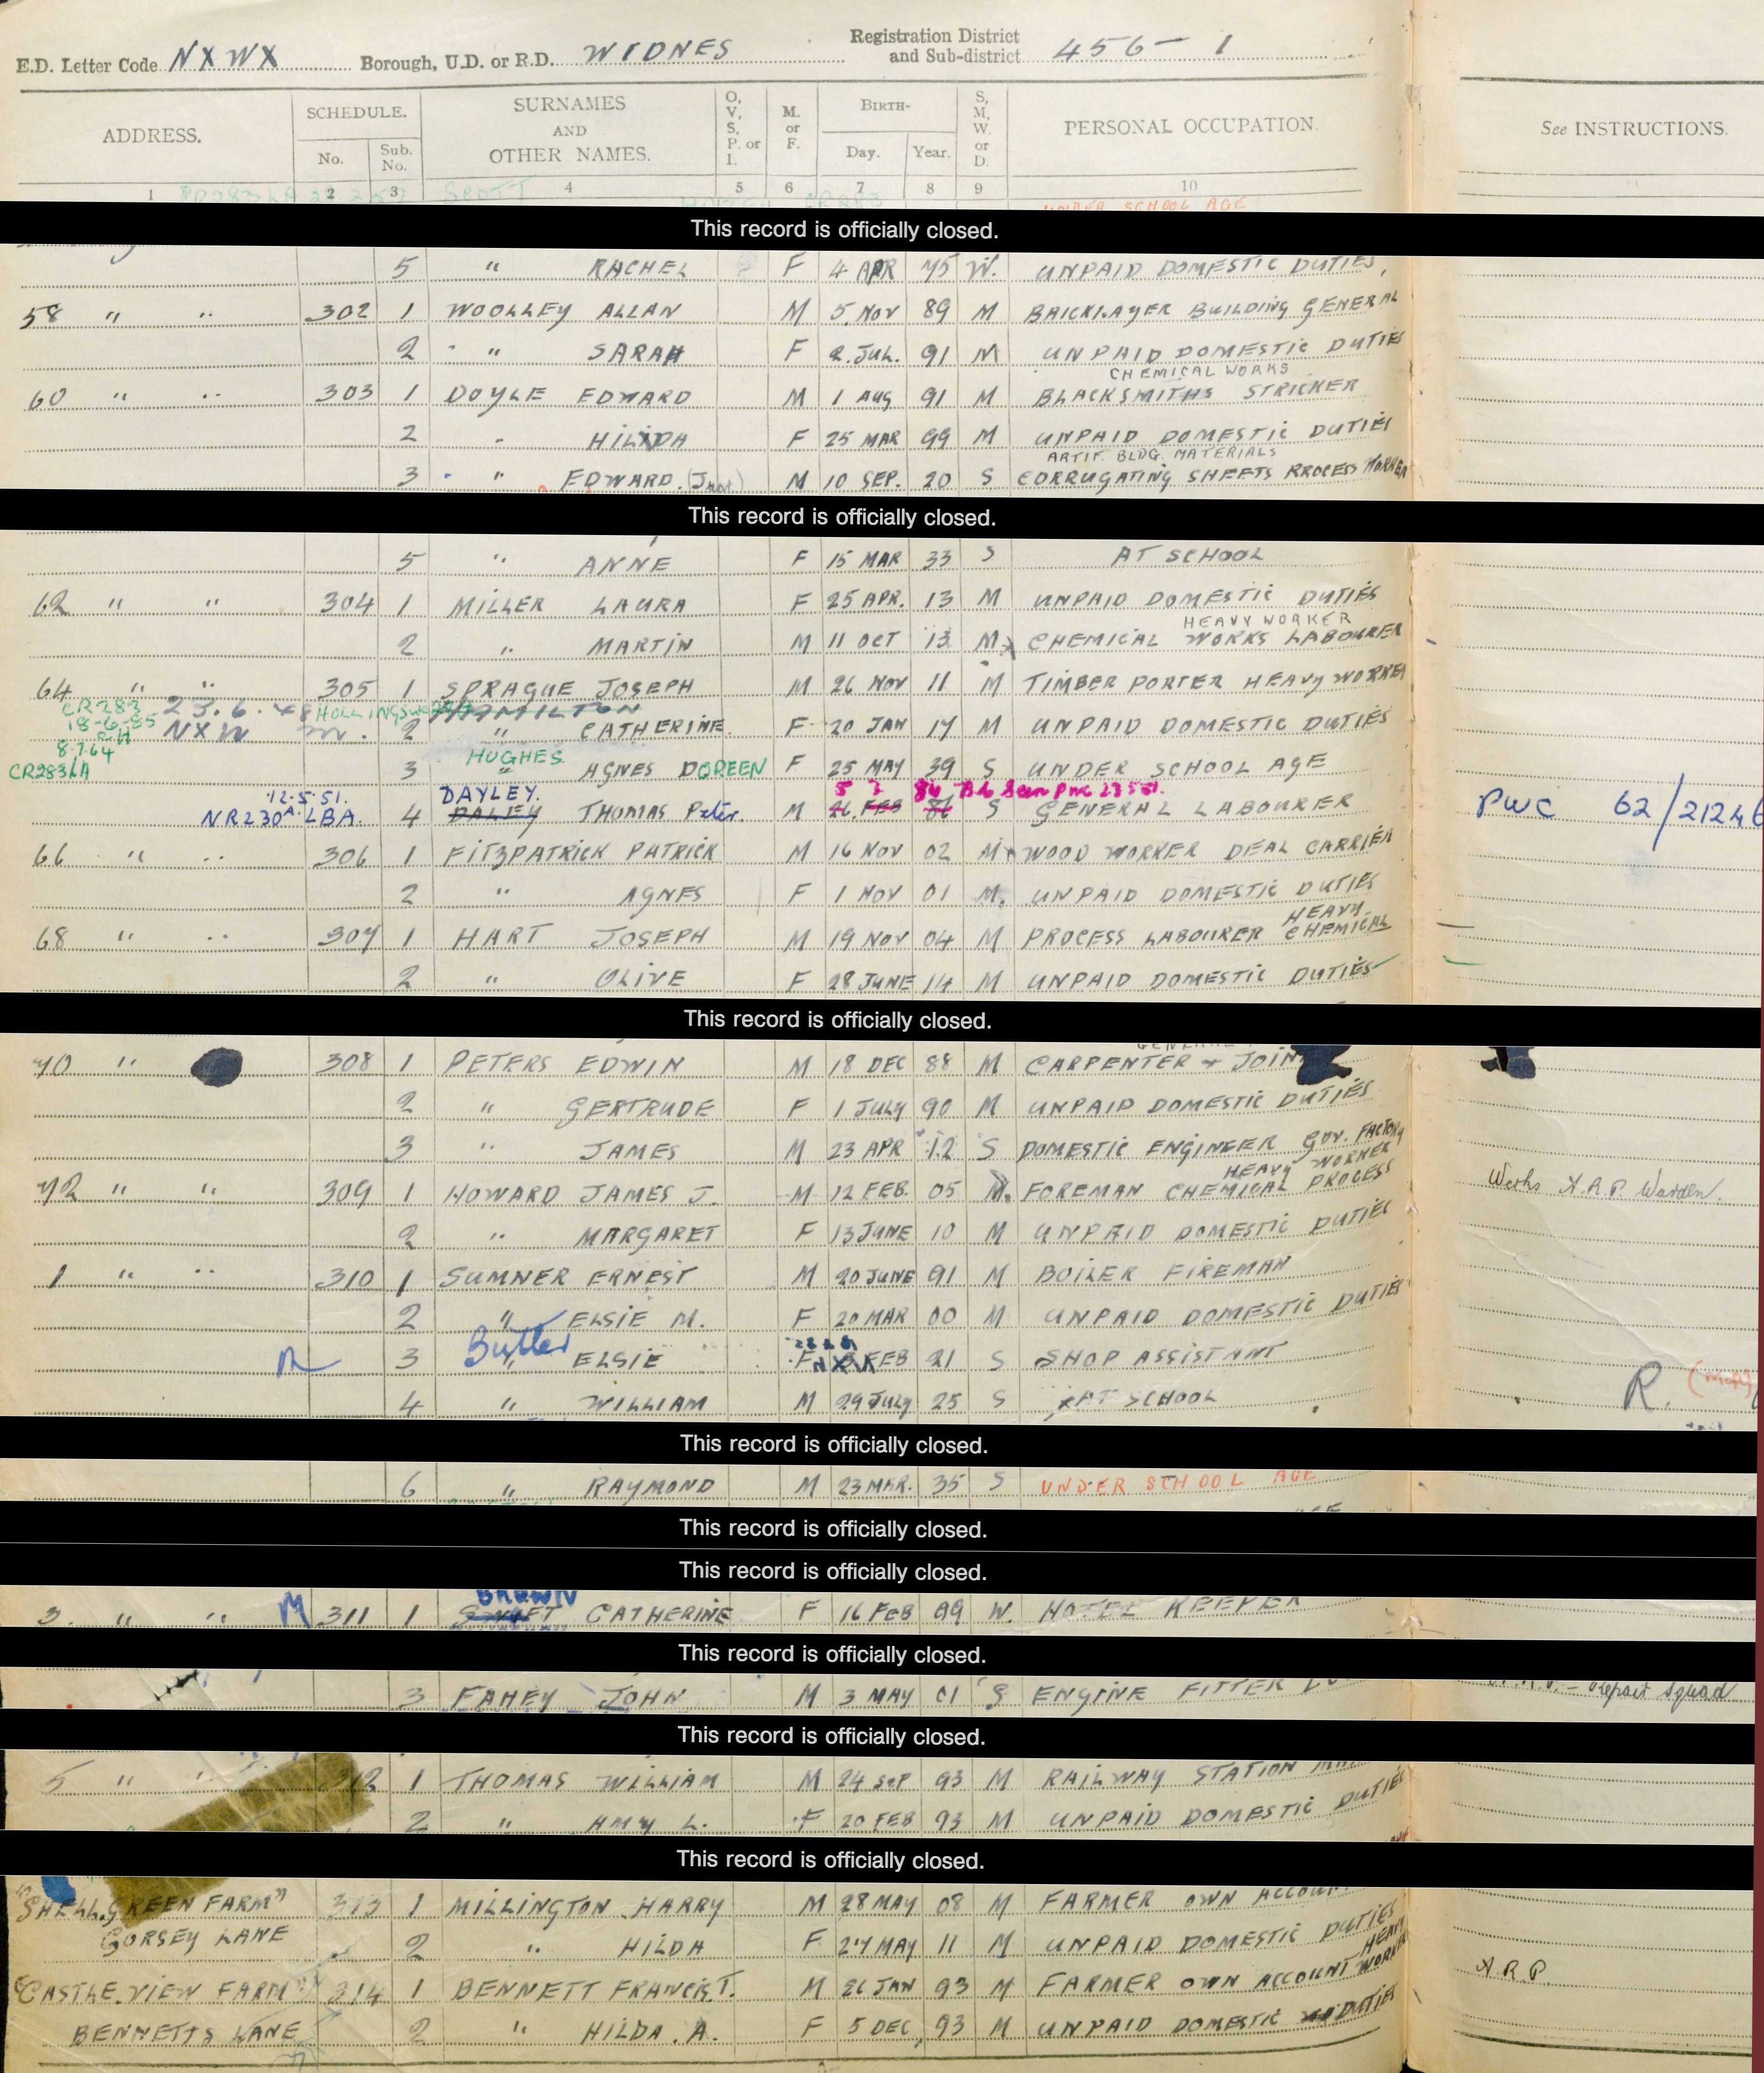 E.D. Letter Code NXWX Borough, U.D. or R.D. WIDNES Registration District and Sub-district 456-1
ADDRESS. SCHEDULE. No. Sub. No. SURNAMES AND OTHER NAMES. O, V, S, P. or I. M. or F. BIRTH- Day. Year. S, M, W. or D. PERSONAL OCCUPATION. See INSTRUCTIONS.
1 2 3 4 5 6 7 8 9 10
UNDER SCHOOL AGE
This record is officially closed.
5 " RACHEL F 4 APR 75 W. UNPAID DOMESTIC DUTIES,
58 " " 302 1 WOOLLEY ALLAN M 5 NOV 89 M BRICKLAYER BUILDING GENERAL
2 " SARAH F 2 JUL. 91 M UNPAID DOMESTIC DUTIES
CHEMICAL WORKS
60 " " 303 1 DOYLE EDWARD M 1 AUG 91 M BLACKSMITHS STRICKER
2 " HILDA F 25 MAR 99 M UNPAID DOMESTIC DUTIES
ARTIF. BLDG. MATERIALS
3 " EDWARD. M 10 SEP. 20 S CORRUGATING SHEETS PROCESS WORKER
This record is officially closed.
5 " ANNE F 15 MAR 33 S AT SCHOOL
62 " " 304 1 MILLER LAURA F 25 APR. 13 M UNPAID DOMESTIC DUTIES
HEAVY WORKER
2 " MARTIN M 11 OCT 13 M CHEMICAL WORKS LABOURER
64 " " 305 1 SPRAGUE JOSEPH M 26 NOV 11 M TIMBER PORTER HEAVY WORKER
CR283 23.6.48 HOLLINGSWORTH HAMILTON
18-6-85 NXW m. 2 " CATHERINE. F 20 JAN 17 M UNPAID DOMESTIC DUTIES
8.7.64 HUGHES
CR283LA 3 " AGNES DOREEN F 25 MAY 39 S UNDER SCHOOL AGE
12.5.51. DAYLEY. 5 2 86 B.C. Seen PWC 23551.
NR230A. LBA. 4 DALEY THOMAS Peter. M 26 FEB 86 S GENERAL LABOURER PWC 62/21246
66 " " 306 1 FITZPATRICK PATRICK M 16 NOV 02 M WOOD WORKER DEAL CARRIER
2 " AGNES F 1 NOV 01 M. UNPAID DOMESTIC DUTIES
68 " " 307 1 HART JOSEPH M 19 NOV 04 M PROCESS LABOURER HEAVY CHEMICAL
2 " OLIVE F 28 JUNE 14 M UNPAID DOMESTIC DUTIES
This record is officially closed.
70 " 308 1 PETERS EDWIN M 18 DEC 88 M CARPENTER + JOIN
2 " GERTRUDE F 1 JULY 90 M UNPAID DOMESTIC DUTIES
3 " JAMES M 23 APR 12 S DOMESTIC ENGINEER GOV. FACTORY
HEAVY WORKER
72 " " 309 1 HOWARD JAMES J. M 12 FEB. 05 M. FOREMAN CHEMICAL PROCESS Works A.R.P. Warden.
2 " MARGARET F 13 JUNE 10 M UNPAID DOMESTIC DUTIES
1 " " 310 1 SUMNER ERNEST M 20 JUNE 91 M BOILER FIREMAN
2 " ELSIE M. F 20 MAR 00 M UNPAID DOMESTIC DUTIES
Butler
3 " ELSIE F FEB 21 S SHOP ASSISTANT
4 " WILLIAM M 29 JULY 25 S AT SCHOOL R.
This record is officially closed.
6 " RAYMOND M 23 MAR. 35 S UNDER SCHOOL AGE
This record is officially closed.
This record is officially closed.
BROWN
3. " " M 311 1 SWIFT CATHERINE F 16 FEB 99 W. HOTEL KEEPER
This record is officially closed.
3 FAHEY JOHN M 3 MAY 01 S ENGINE FITTER Repair Squad
This record is officially closed.
5 " " 312 1 THOMAS WILLIAM M 24 SEP 93 M RAILWAY STATION
2 " AMY L. F 20 FEB 93 M UNPAID DOMESTIC DUTIES
This record is officially closed.
"SHELL GREEN FARM" 313 1 MILLINGTON HARRY M 28 MAY 08 M FARMER OWN ACCOUNT
GORSEY LANE 2 " HILDA F 27 MAY 11 M UNPAID DOMESTIC DUTIES
"CASTLE VIEW FARM" 314 1 BENNETT FRANCIS T. M 26 JAN 93 M FARMER OWN ACCOUNT HEAVY WORKER A.R.P
BENNETTS LANE 2 " HILDA. A. F 5 DEC 93 M UNPAID DOMESTIC DUTIES